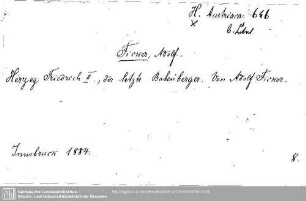 H. Austriaca 646
x
Ficker, Adolf.
Herzog Friedrich II, der letzte Babenberger. Von Adolf Ficker.
Innsbruck 1884.
8.
Sächsische Landesbibliothek -
Staats- und Universitätsbibliothek Dresden